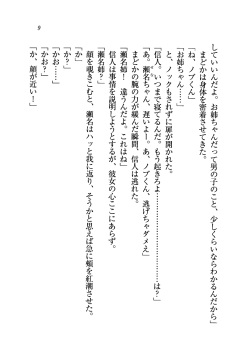 していいんだよ。お姉ちゃんだって男の子のこと、少しくらいならわかるんだから」
まどかは身体を密着させてきた。
「ね、ノブくん」
「お姉ちゃん……」
と、ノックもされずに扉が開かれた。
「信人。いつまで寝てんのよ。もう起きろよ………………………………は?」
「あ。瀬名ちゃん、遅いよー。あ、ノブくん、逃げちゃダメえ」
まどかの腕の力が緩んだ瞬間、信人は逃れた。
「瀬名姉! 違うんだ。これはね」
信人は事情を説明しようとするが、彼女の心ここにあらず。
「瀬名姉?」
「かお……」
「かお?」
顔を覗きこむと、瀬名はハッと我に返り、そうかと思えば急に頬を紅潮させた。
「か、顔が近いー!」
9